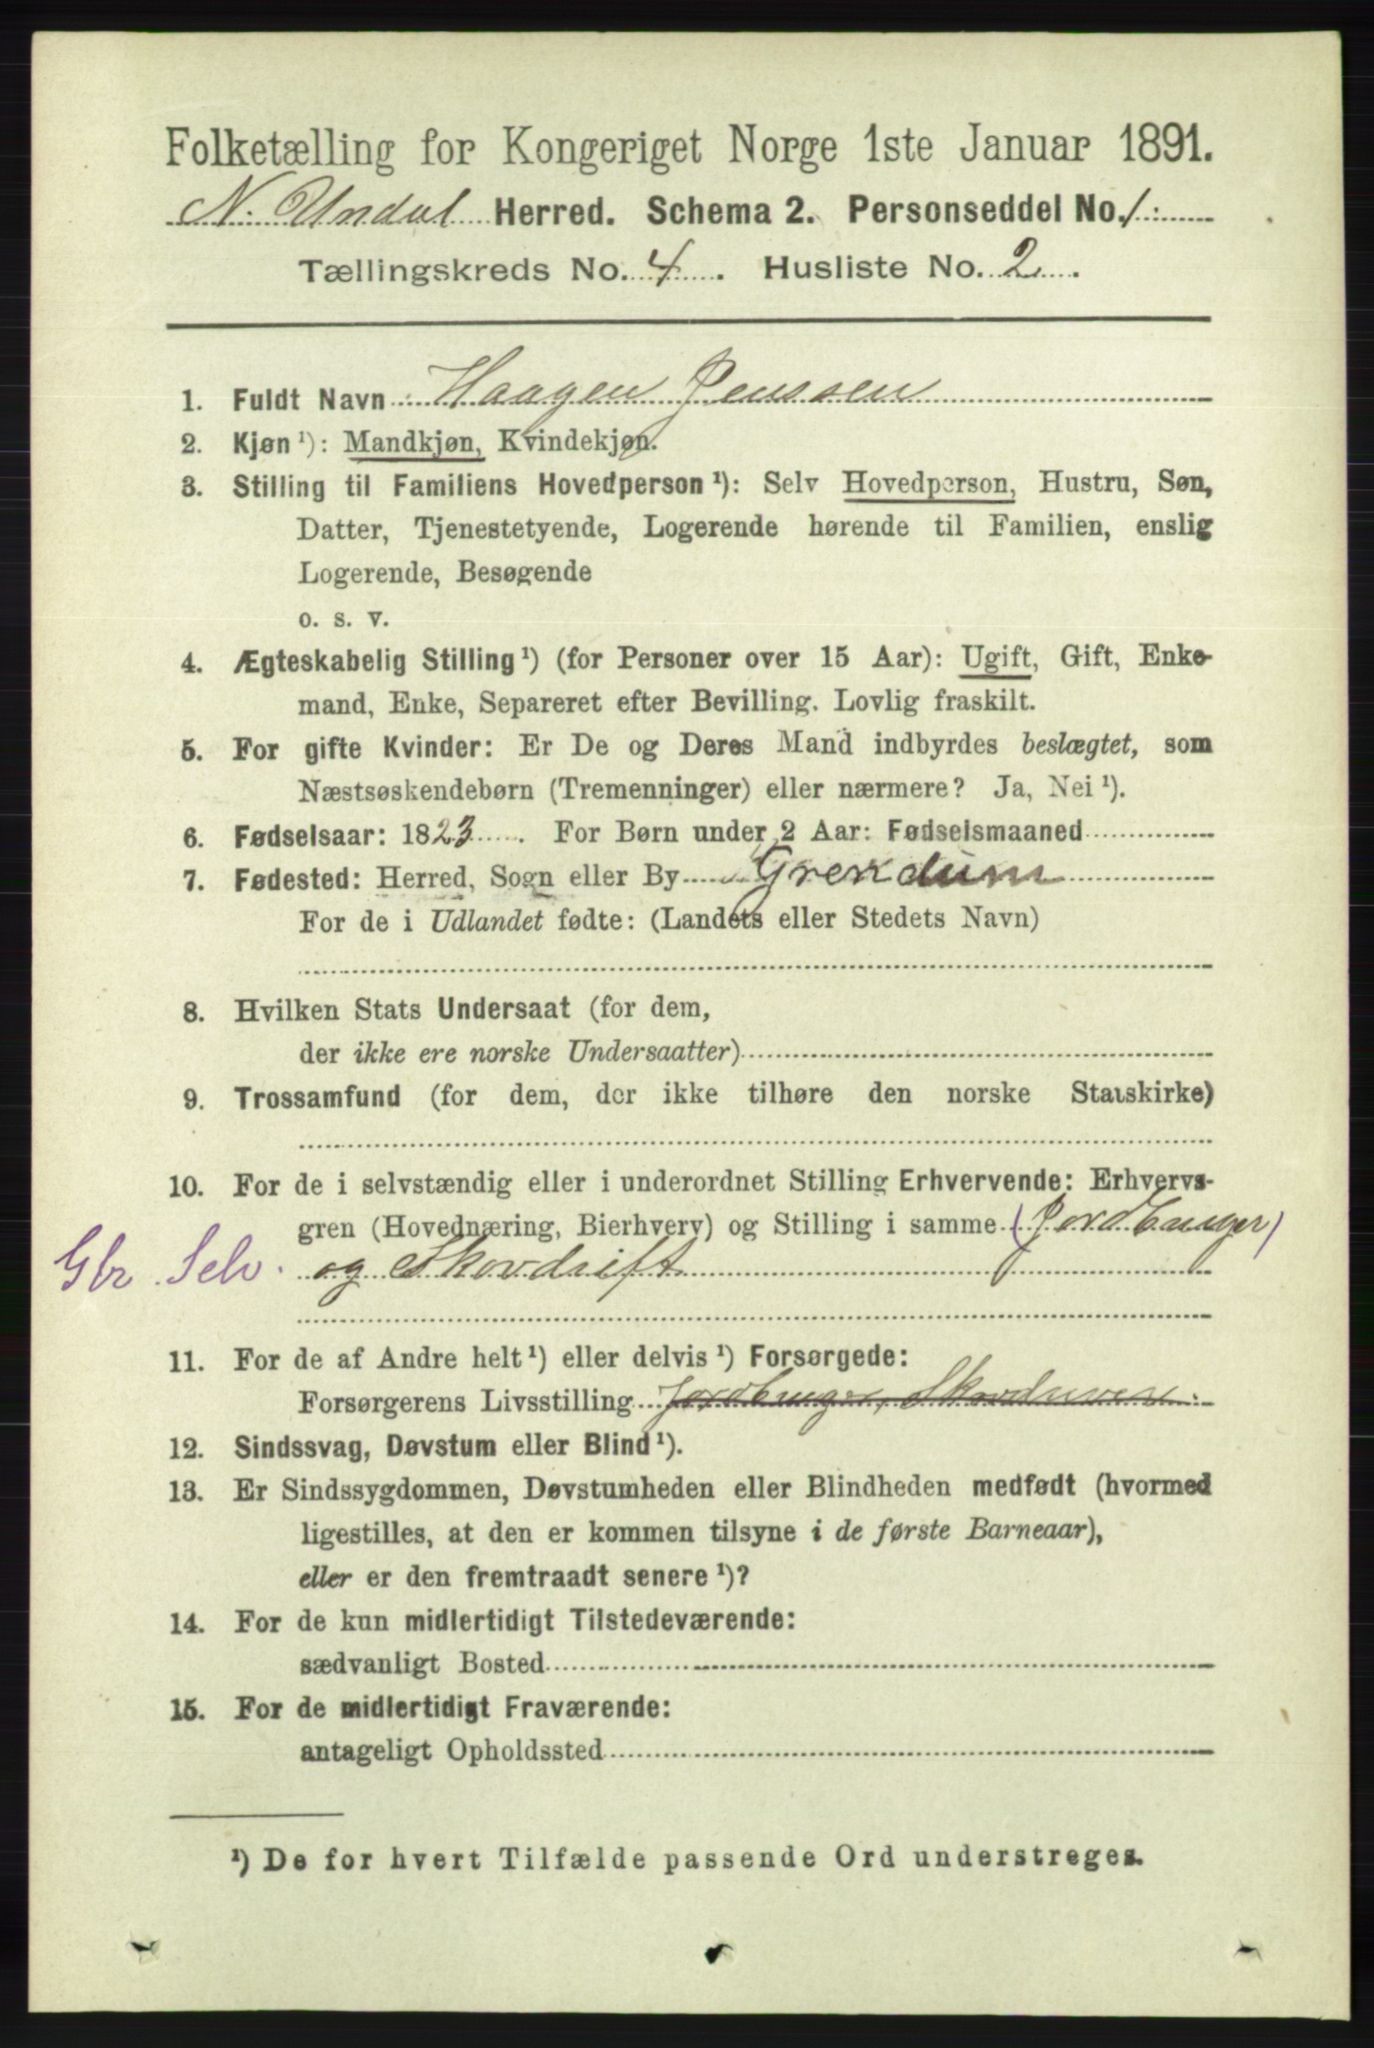 Folketælling for Kongeriget Norge 1ste Januar 1891.
N. Undal Herred. Schema 2. Personseddel No. 1.
Tællingskreds No. 4. Husliste No. 2.
1. Fuldt Navn Haagen Jenssen
2. Kjøn¹): Mandkjøn, Kvindekjøn.
3. Stilling til Familiens Hovedperson¹): Selv Hovedperson, Hustru, Søn,
Datter, Tjenestetyende, Logerende hørende til Familien, enslig
Logerende, Besøgende
o. s. v.
4. Ægteskabelig Stilling¹) (for Personer over 15 Aar): Ugift, Gift, Enke-
mand, Enke, Separeret efter Bevilling. Lovlig fraskilt.
5. For gifte Kvinder: Er De og Deres Mand indbyrdes beslægtet, som
Næstsøskendebørn (Tremenninger) eller nærmere? Ja, Nei¹).
6. Fødselsaar: 1823. For Børn under 2 Aar: Fødselsmaaned
7. Fødested: Herred, Sogn eller By
For de i Udlandet fødte: (Landets eller Stedets Navn)
8. Hvilken Stats Undersaat (for dem,
der ikke ere norske Undersaatter)
9. Trossamfund (for dem, der ikke tilhøre den norske Statskirke)
10. For de i selvstændig eller i underordnet Stilling Erhvervende: Erhvervs-
gren (Hovednæring, Bierhverv) og Stilling i samme (Jordbruger)
Gbr Selv. og Skovdrift
11. For de af Andre helt¹) eller delvis¹) Forsørgede:
Forsørgerens Livsstilling Jordbruger,
12. Sindssvag, Døvstum eller Blind¹).
13. Er Sindssygdommen, Døvstumheden eller Blindheden medfødt (hvormed
ligestilles, at den er kommen tilsyne i de første Barneaar),
eller er den fremtraadt senere¹)?
14. For de kun midlertidigt Tilstedeværende:
sædvanligt Bosted
15. For de midlertidigt Fraværende:
antageligt Opholdssted
¹) De for hvert Tilfælde passende Ord understreges.